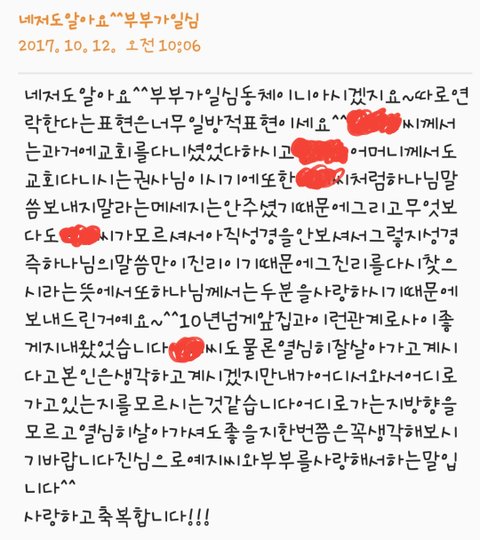 네저도알아요^^부부가일심
2017. 10. 12. 오전 10:06
네저도알아요^^부부가일심동체이니아시겠지요~따로연
락한다는표현은너무일방적표현이세요^^ 씨께서
는과거에교회를다니셨었다하시고 어머니께서도
교회다니시는권사님이시기에또한 씨처럼하나님말
씀보내지말라는메세지는안주셨기때문에그리고무엇보
다도 씨가모르셔서아직성경을안보셔서그렇지성경
즉하나님의말씀만이진리이기때문에그진리를다시찾으
시라는뜻에서또하나님께서는두분을사랑하시기때문에
보내드린거예요~^^10년넘게앞집과이런관계로사이좋
게지내왔었습니다 씨도물론열심히잘살아가고계시
다고본인은생각하고계시겠지만내가어디서와서어디로
가고있는지를모르시는것같습니다어디로가는지방향을
모르고열심히살아가셔도좋을지한번쯤은꼭생각해보시
기바랍니다진심으로예지씨와부부를사랑해서하는말입
니다^^
사랑하고축복합니다!!!